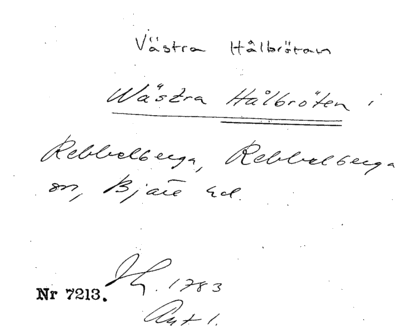 Västra Hålbröten
Wästra Hålbröten i
Rebbelberga, Rebbelberga
sn, Bjäre hd.
Nr 7213.
1783
Akt 1.